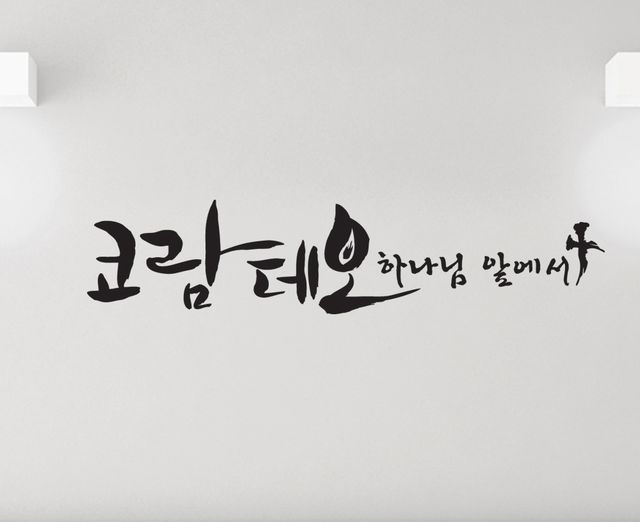 코람데오 하나님 앞에서